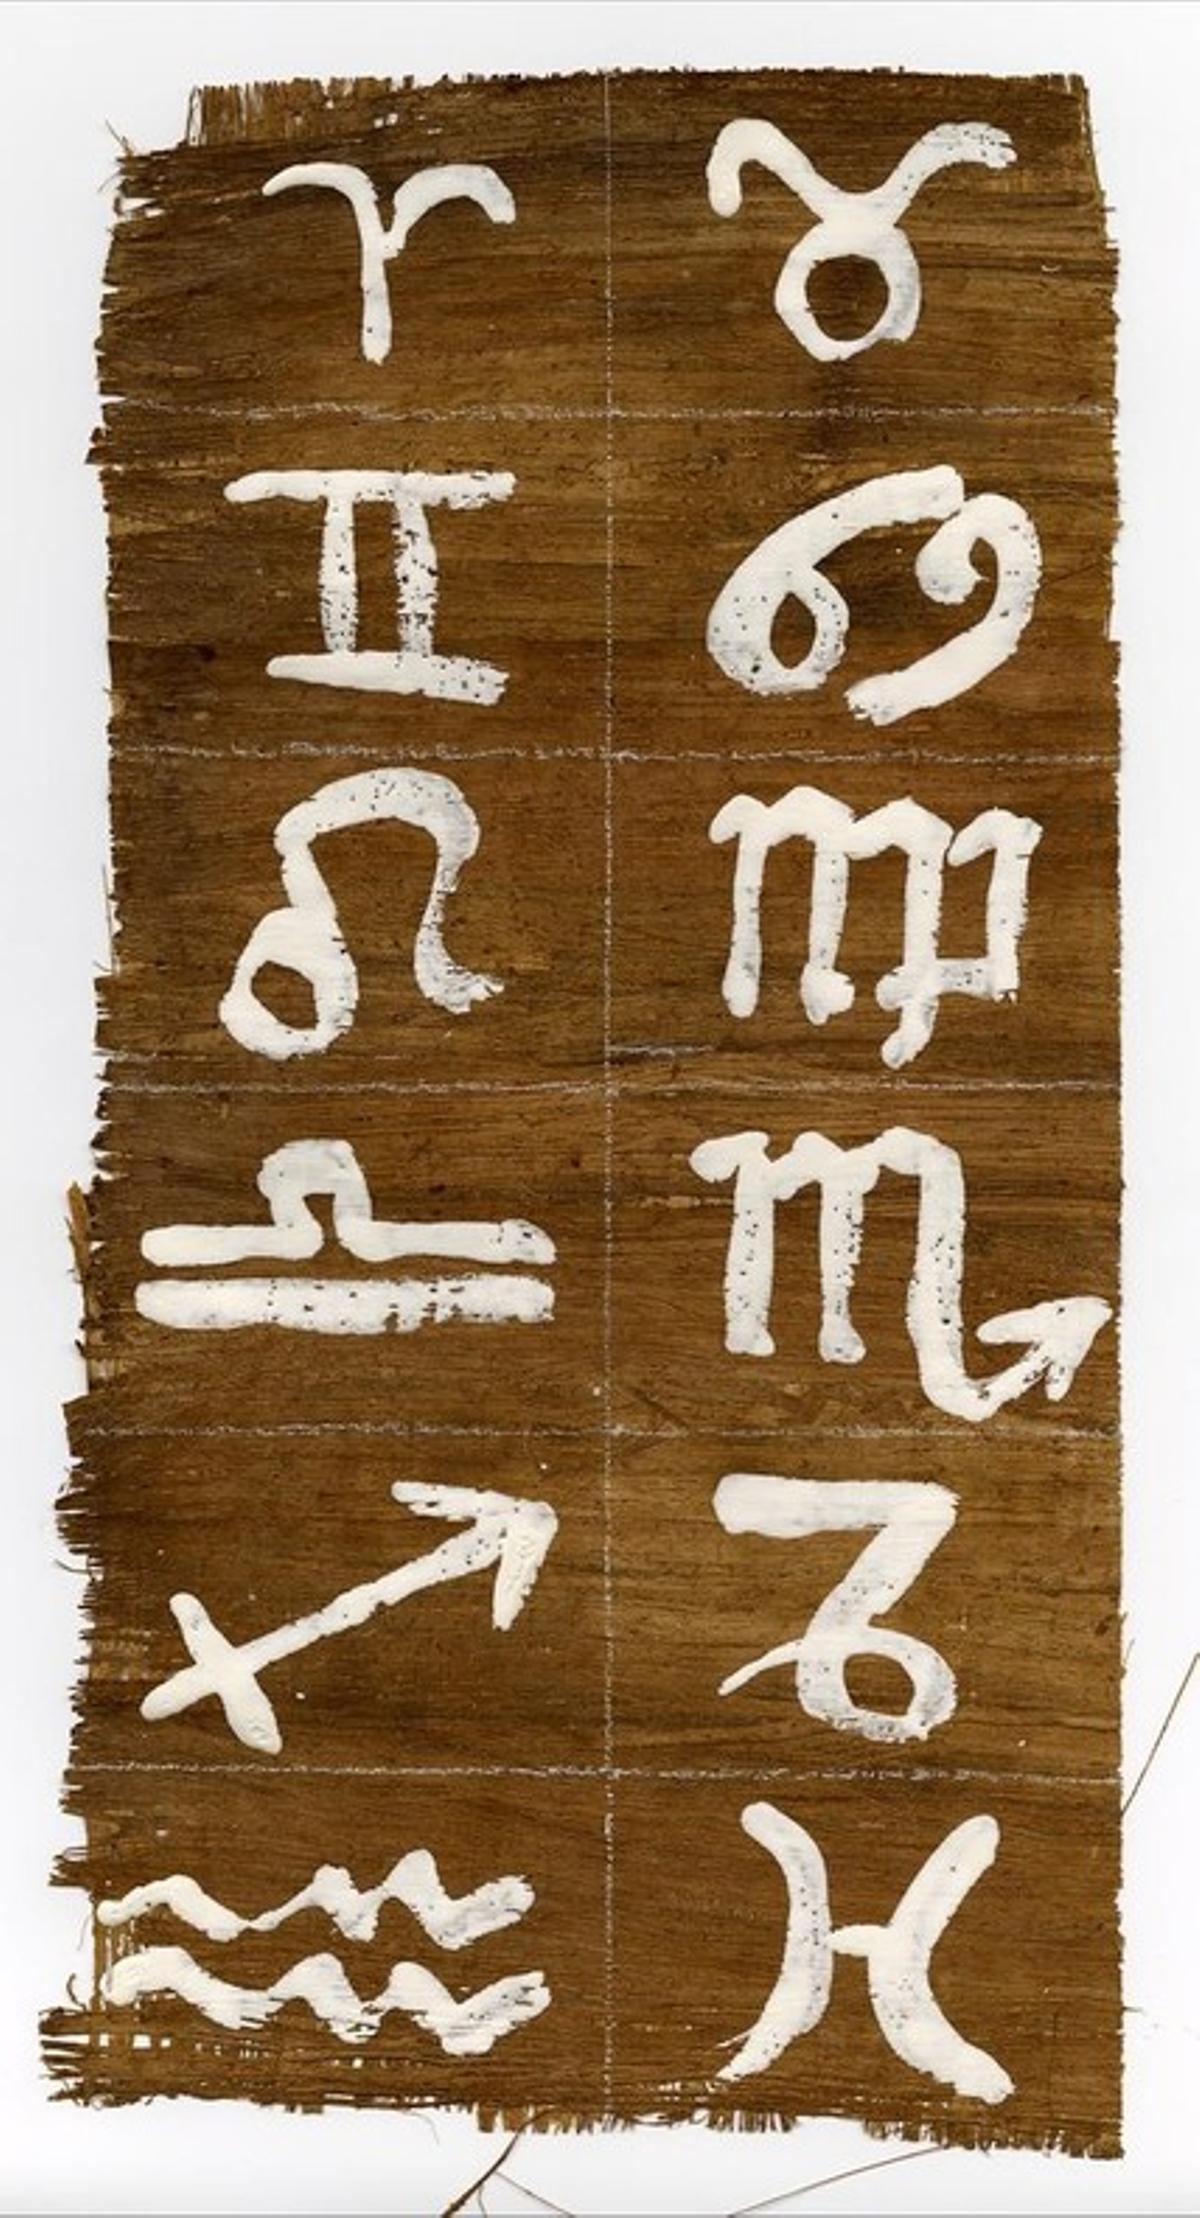 ♈ ♉
♊ ♋
♌ ♍
♎ ♏
♐ ♑
♒ ♓